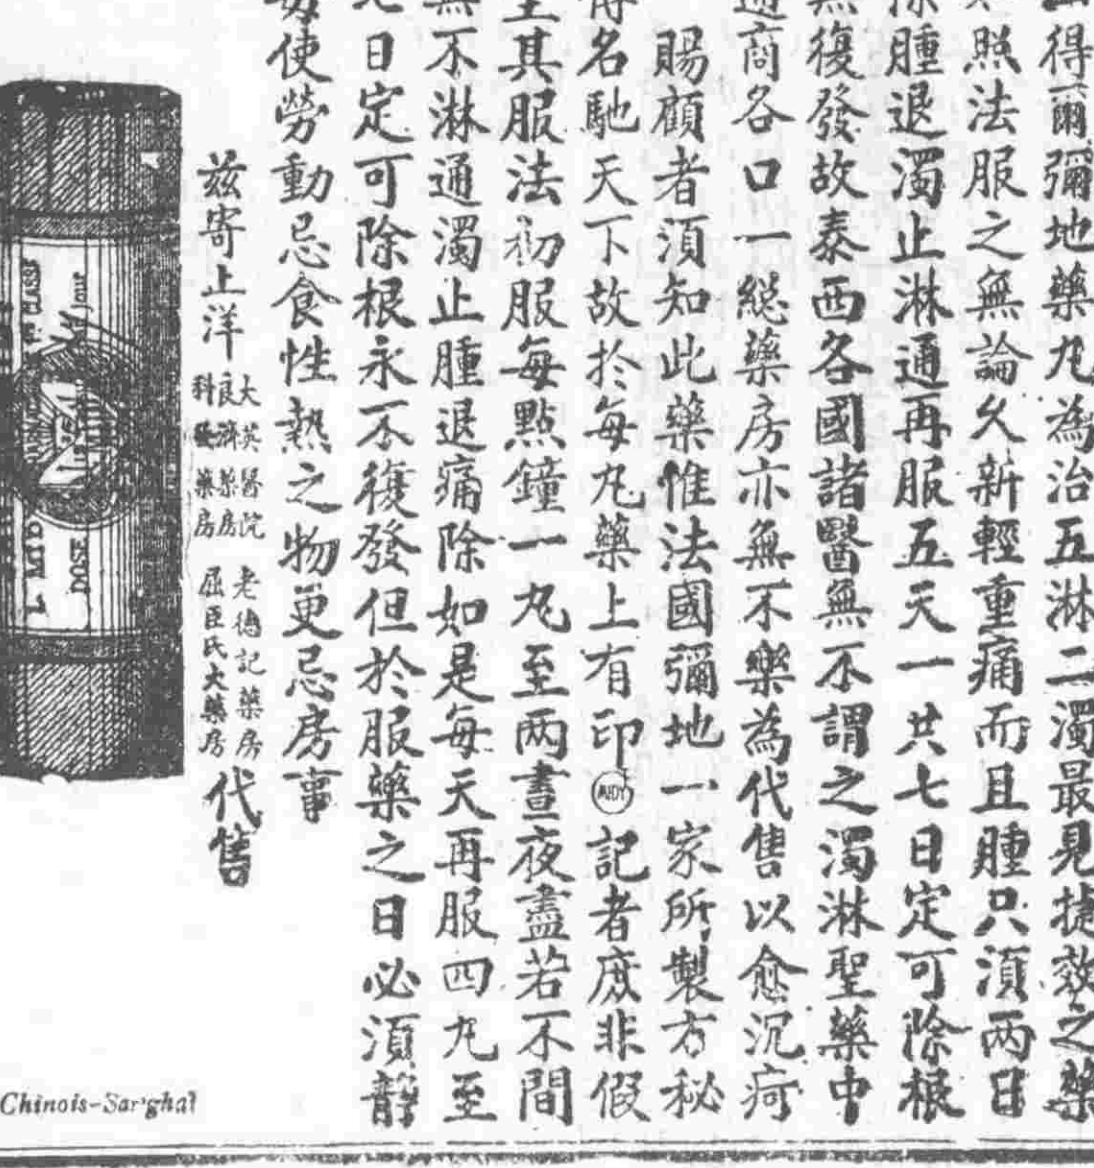 得爾彌地藥丸為治五淋二濁最見捷效之藥
照法服之無論久新輕重痛而且腫只須兩日
腫退濁止淋通再服五天一共七日定可除根
無復發故泰西各國諸醫無不謂之濁淋聖藥中
通商各口一總藥房亦無不樂為代售以愈沉疴
賜顧者須知此藥惟法國彌地一家所製方秘
得名馳天下故於每丸藥上有印MIDY記者庶非假
至其服法初服每點鐘一丸至兩晝夜盡若不間
無不淋通濁止腫退痛除如是每天再服四丸至
日定可除根永不復發但於服藥之日必須靜
使勞動忌食性熱之物更忌房事
茲寄上洋
大英醫院
良濟藥房
科發藥房
老德記藥房
屈臣氏大藥房
代售
Chinois-Sar'ghal